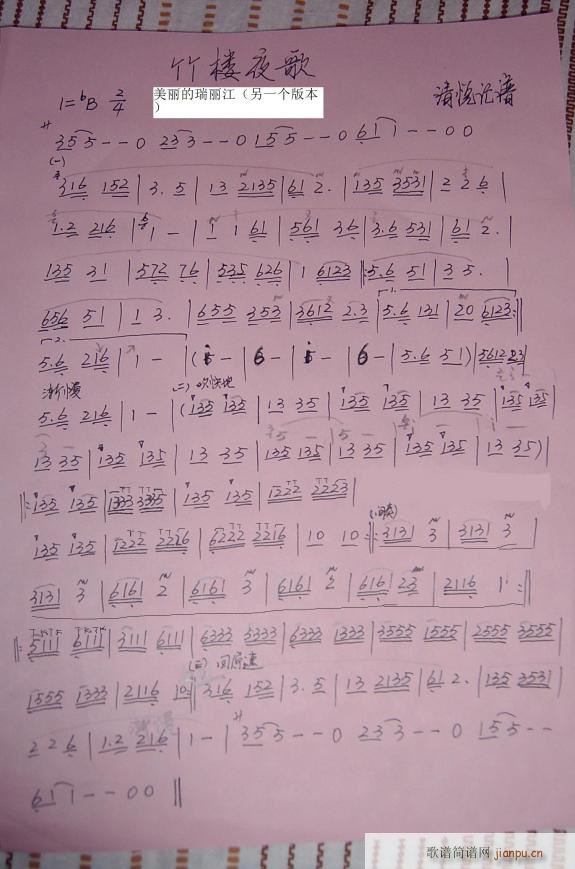 竹楼夜歌
1=bB 2/4
美丽的瑞丽江（另一个版本）
清悦记谱
サ 3 5 5 - - 0 2 3 3 - - 0 1 5 5 - - 0 6 1 1 - - 0 0
(一)
3 1 6 1 5 2 | 3. 5 | 1 3 2 1 3 5 | 6 1 2. | 1 3 5 3 5 3 1 | 2 2 6 |
1. 2 2 1 6 | 1 - | 1 1 6 1 | 5 6 1 3 6 | 3. 6 5 3 1 | 6 1 2. |
1 3 5 3 1 | 5 7 2 7 6 | 5 3 5 6 2 6 | 1 6 1 2 3 |: 5. 6 5 1 | 3 5. |
6 5 6 5 1 | 1 3. | 6 5 5 3 5 3 | 3 6 1 2 2. 3 | 1. 5. 6 1 3 1 | 2 0 6 1 2 3 :|
2. 5. 6 2 1 6 | 1 - | ( i - | 6 - | i - | 6 - | 5. 6 5 1 ) | 5 6 1 2 2 3 |
渐慢 5. 6 2 1 6 | 1 - | (二) 欢快地 ( 1 3 5 1 3 5 | 1 3 3 5 | 1 3 5 1 3 5 | 1 3 3 5 | 1 3 5 1 3 5 |
1 3 3 5 | 1 3 5 1 3 5 | 1 3 3 5 | 1 3 5 1 3 5 | 1 3 3 5 | 1 3 5 1 3 5 | 1 3 3 5 ) |
|: 1 3 5 1 3 5 | 1 3 3 3 3 3 3 5 | 1 3 5 1 3 5 | 1 2 2 2 2 2 2 3 |
1 3 5 1 3 5 | 1 2 2 2 2 2 1 6 | 6 2 2 2 2 2 1 6 | 1 0 1 0 :|: 3 1 3 1 3 | 3 1 3 1 3 |
3 1 3 1 3 | 6 1 6 1 2 | 6 1 6 1 3 | 6 1 6 1 2 | 6 1 6 1 2 3 | 2 1 1 6 1 :|
|: 5 1 1 1 6 1 1 1 | 3 1 1 1 6 1 1 1 | 6 3 3 3 5 3 3 3 | 6 3 3 3 1 3 3 3 | 3 5 5 5 1 5 5 5 | 2 5 5 5 3 5 5 5 |
1 5 5 5 1 3 3 3 | 2 1 1 6 1 0 :| (三) 回原速 3 1 6 1 5 2 | 3. 5 | 1 3 2 1 3 5 | 6 1 2. | 1 3 5 3 5 3 1 |
2 2 6 | 1. 2 2 1 6 | 1 - | サ 3 5 5 - - 0 2 3 3 - - 0 1 5 5 - -
6 1 1 - - 0 0 ||
歌谱简谱网
jianpu.cn